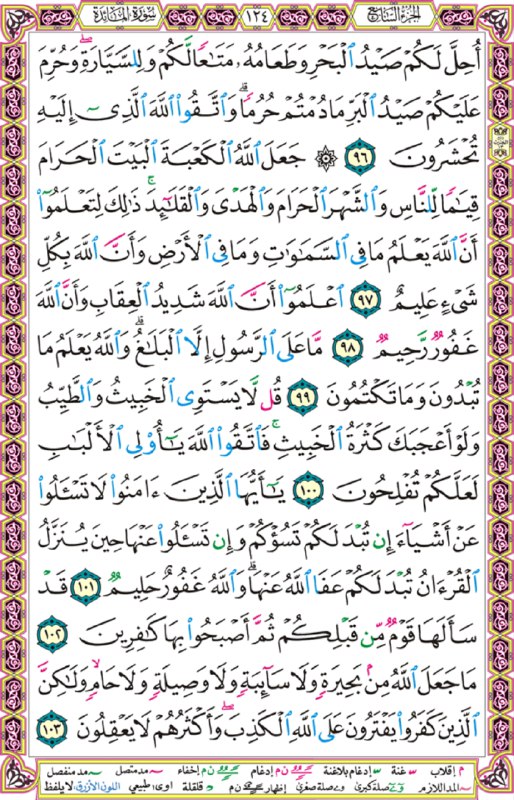 الجزء السابع ١٢٤ سورة المائدة
أُحِلَّ لَكُمْ صَيْدُ ٱلْبَحْرِ وَطَعَامُهُۥ مَتَٰعًا لَّكُمْ وَلِلسَّيَّارَةِ ۖ وَحُرِّمَ
عَلَيْكُمْ صَيْدُ ٱلْبَرِّ مَا دُمْتُمْ حُرُمًا ۗ وَٱتَّقُوا۟ ٱللَّهَ ٱلَّذِىٓ إِلَيْهِ
تُحْشَرُونَ ٩٦ ۞ جَعَلَ ٱللَّهُ ٱلْكَعْبَةَ ٱلْبَيْتَ ٱلْحَرَامَ
قِيَٰمًا لِّلنَّاسِ وَٱلشَّهْرَ ٱلْحَرَامَ وَٱلْهَدْىَ وَٱلْقَلَٰٓئِدَ ۚ ذَٰلِكَ لِتَعْلَمُوٓا۟
أَنَّ ٱللَّهَ يَعْلَمُ مَا فِى ٱلسَّمَٰوَٰتِ وَمَا فِى ٱلْأَرْضِ وَأَنَّ ٱللَّهَ بِكُلِّ
شَىْءٍ عَلِيمٌ ٩٧ ٱعْلَمُوٓا۟ أَنَّ ٱللَّهَ شَدِيدُ ٱلْعِقَابِ وَأَنَّ ٱللَّهَ
غَفُورٌ رَّحِيمٌ ٩٨ مَّا عَلَى ٱلرَّسُولِ إِلَّا ٱلْبَلَٰغُ ۗ وَٱللَّهُ يَعْلَمُ مَا
تُبْدُونَ وَمَا تَكْتُمُونَ ٩٩ قُل لَّا يَسْتَوِى ٱلْخَبِيثُ وَٱلطَّيِّبُ
وَلَوْ أَعْجَبَكَ كَثْرَةُ ٱلْخَبِيثِ ۚ فَٱتَّقُوا۟ ٱللَّهَ يَٰٓأُو۟لِى ٱلْأَلْبَٰبِ
لَعَلَّكُمْ تُفْلِحُونَ ١٠٠ يَٰٓأَيُّهَا ٱلَّذِينَ ءَامَنُوا۟ لَا تَسْـَٔلُوا۟
عَنْ أَشْيَآءَ إِن تُبْدَ لَكُمْ تَسُؤْكُمْ وَإِن تَسْـَٔلُوا۟ عَنْهَا حِينَ يُنَزَّلُ
ٱلْقُرْءَانُ تُبْدَ لَكُمْ عَفَا ٱللَّهُ عَنْهَا ۗ وَٱللَّهُ غَفُورٌ حَلِيمٌ ١٠١ قَدْ
سَأَلَهَا قَوْمٌ مِّن قَبْلِكُمْ ثُمَّ أَصْبَحُوا۟ بِهَا كَٰفِرِينَ ١٠٢
مَا جَعَلَ ٱللَّهُ مِنۢ بَحِيرَةٍ وَلَا سَآئِبَةٍ وَلَا وَصِيلَةٍ وَلَا حَامٍ ۙ وَلَٰكِنَّ
ٱلَّذِينَ كَفَرُوا۟ يَفْتَرُونَ عَلَى ٱللَّهِ ٱلْكَذِبَ ۖ وَأَكْثَرُهُمْ لَا يَعْقِلُونَ ١٠٣
م إقلاب س غنة س إدغام بلاغنة ن م إدغام ن م إخفاء مد متصل مد منفصل
المد اللازم صلة كبرى صلة صغرى إظهار ن م قلقلة اوى؛ طبيعي اللون الأزرق، لايلفظ